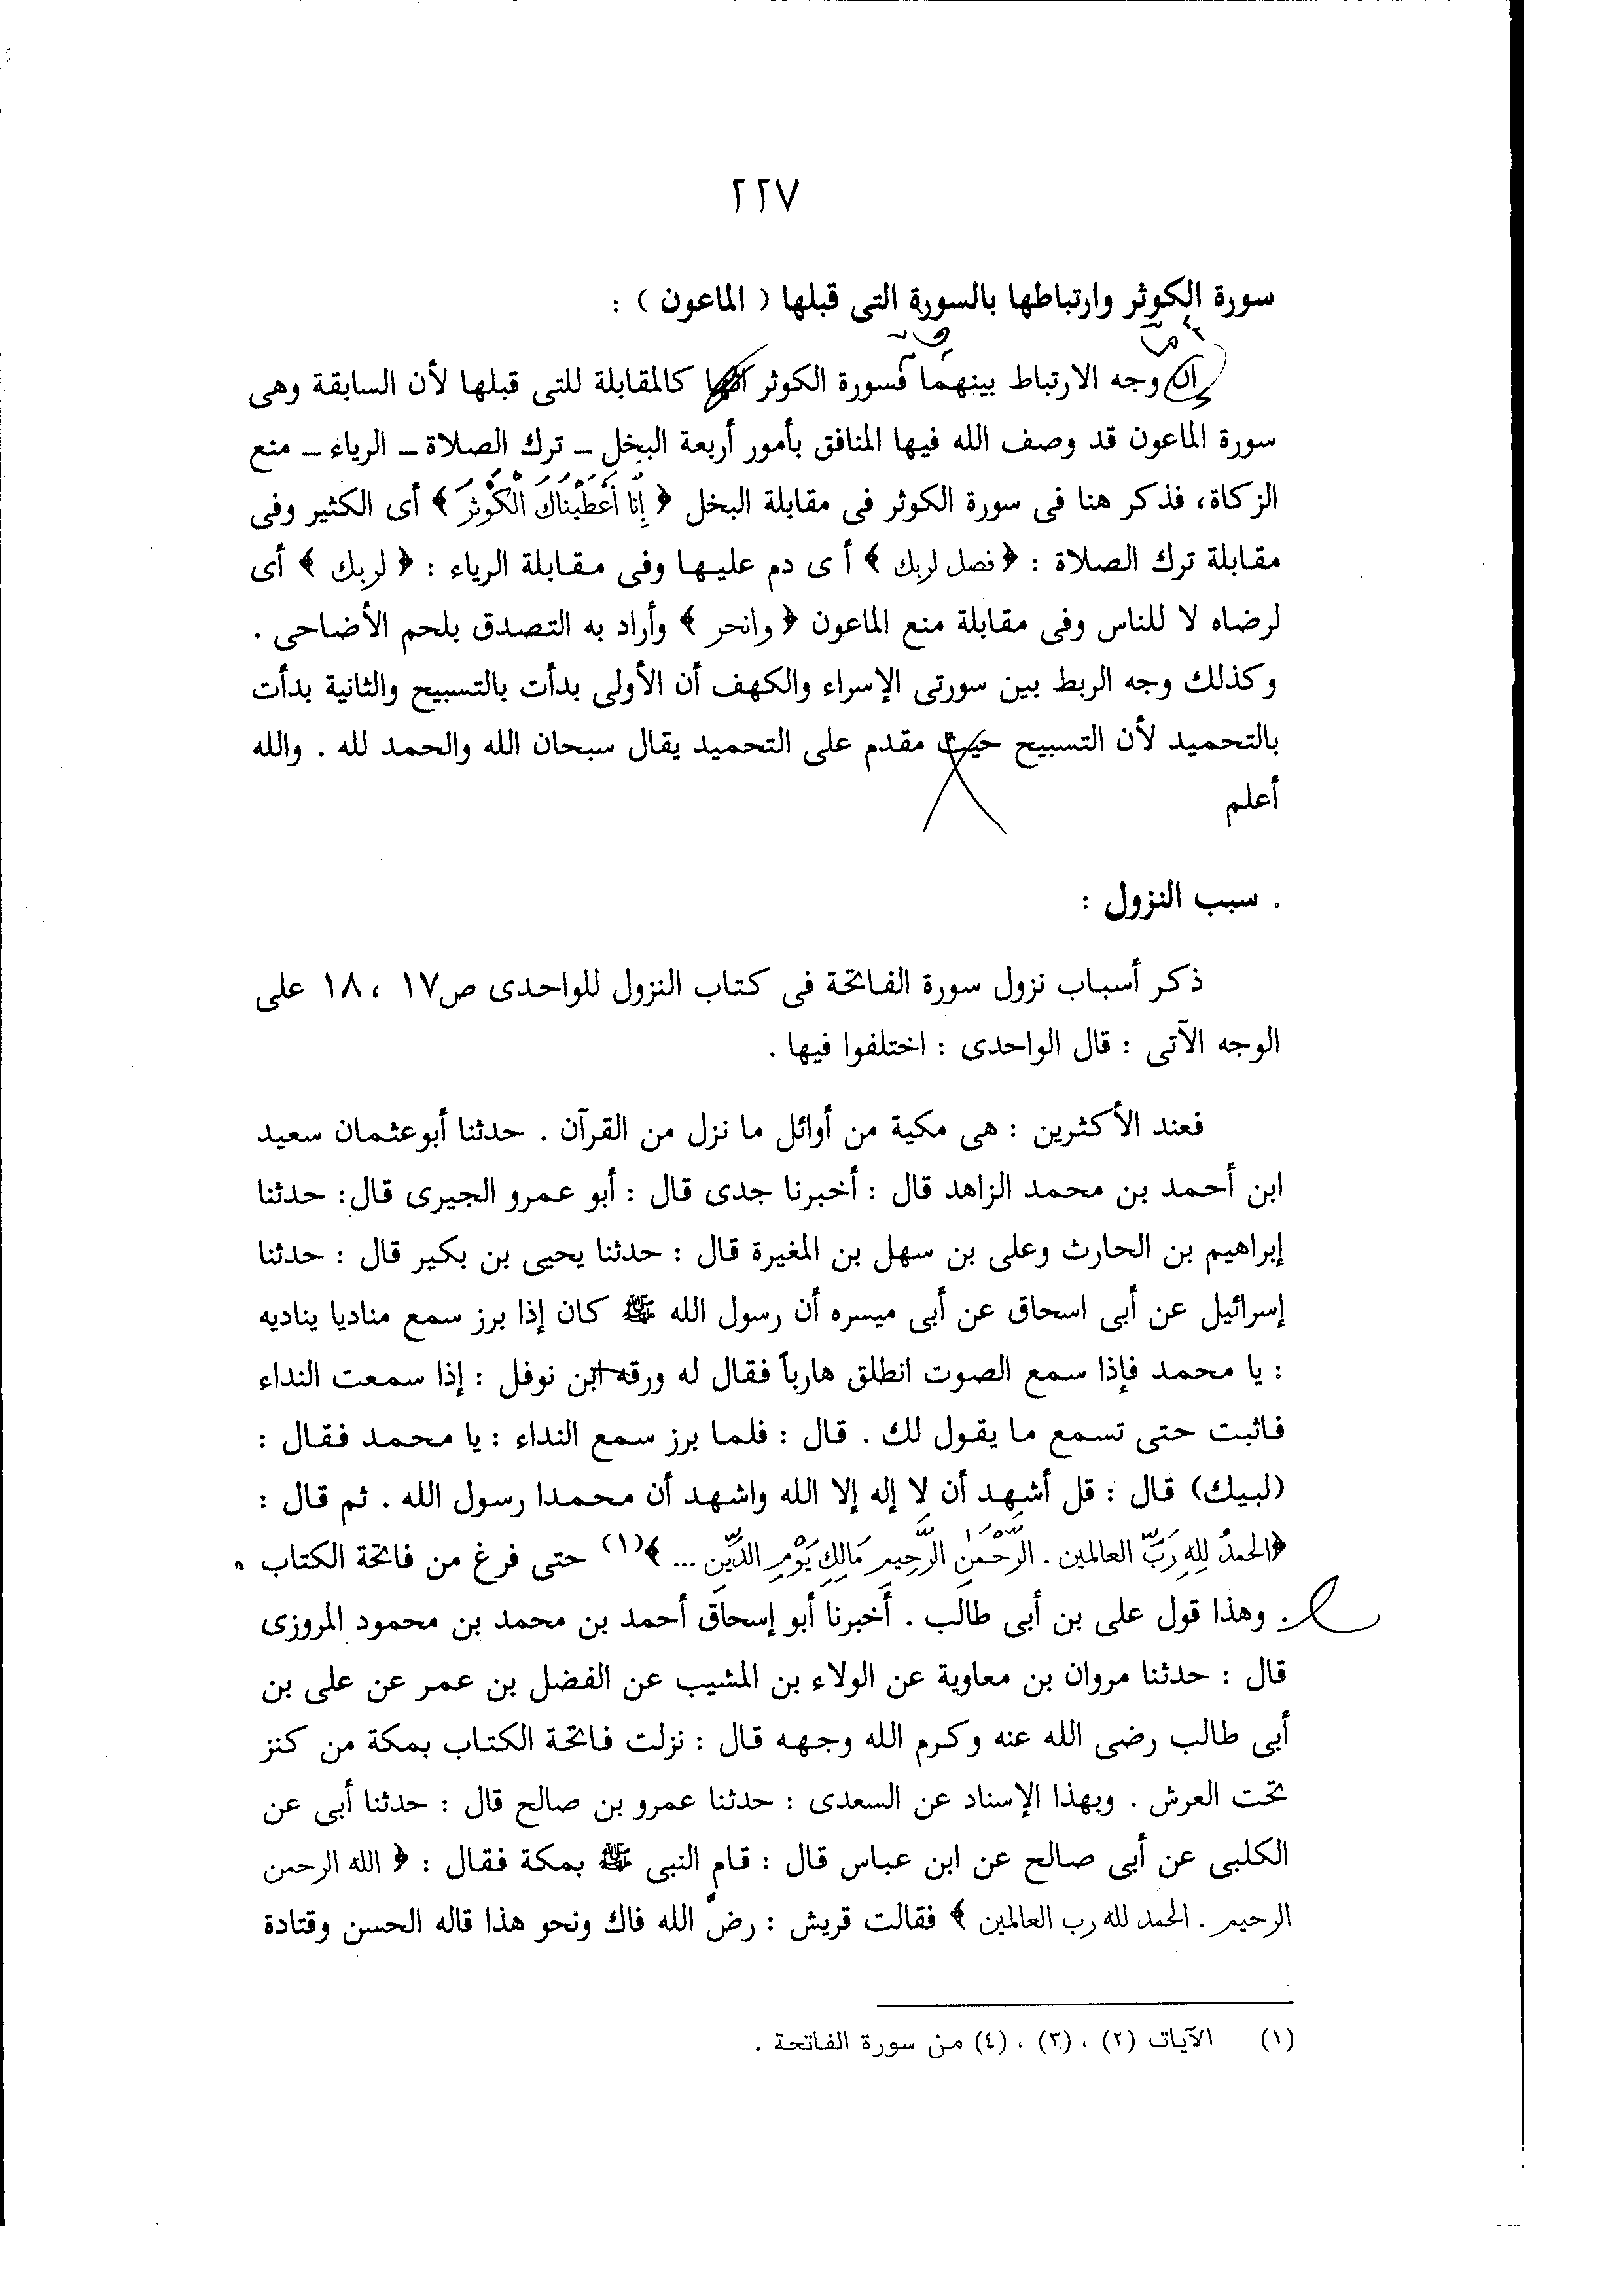 ٢٢٧
سورة الكوثر وارتباطها بالسورة التى قبلها ( الماعون ) :
ان وجه الارتباط بينهما فسورة الكوثر كالمقابلة للتى قبلها لأن السابقة وهى
سورة الماعون قد وصف الله فيها المنافق بأمور أربعة البخل – ترك الصلاة – الرياء – منع
الزكاة، فذكر هنا فى سورة الكوثر فى مقابلة البخل ﴿ إِنَّا أَعْطَيْنَاكَ الْكَوْثَرَ ﴾ أى الكثير وفى
مقابلة ترك الصلاة : ﴿ فصل لربك ﴾ أى دم عليها وفى مقابلة الرياء : ﴿ لربك ﴾ أى
لرضاه لا للناس وفى مقابلة منع الماعون ﴿ وانحر ﴾ وأراد به التصدق بلحم الأضاحى .
وكذلك وجه الربط بين سورتى الإسراء والكهف أن الأولى بدأت بالتسبيح والثانية بدأت
بالتحميد لأن التسبيح حيث مقدم على التحميد يقال سبحان الله والحمد لله . والله
أعلم
. سبب النزول :
ذكر أسباب نزول سورة الفاتحة فى كتاب النزول للواحدى ص١٧ ، ١٨ على
الوجه الآتى : قال الواحدى : اختلفوا فيها .
فعند الأكثرين : هى مكية من أوائل ما نزل من القرآن . حدثنا أبوعثمان سعيد
ابن أحمد بن محمد الزاهد قال : أخبرنا جدى قال : أبو عمرو الجيرى قال: حدثنا
إبراهيم بن الحارث وعلى بن سهل بن المغيرة قال : حدثنا يحيى بن بكير قال : حدثنا
إسرائيل عن أبى اسحاق عن أبى ميسره أن رسول الله ﷺ كان إذا برز سمع مناديا يناديه
: يا محمد فإذا سمع الصوت انطلق هارباً فقال له ورقه ابن نوفل : إذا سمعت النداء
فاثبت حتى تسمع ما يقول لك . قال : فلما برز سمع النداء : يا محمد فقال :
(لبيك) قال : قل أشهد أن لا إله إلا الله واشهد أن محمدا رسول الله . ثم قال :
﴿الحمدُ لِلهِ رَبِّ العالمين . الرَّحْمَنِ الرَّحِيمِ مَالِكِ يَوْمِ الدِّينِ ... ﴾(١) حتى فرغ من فاتحة الكتاب
. وهذا قول على بن أبى طالب . أخبرنا أبو إسحاق أحمد بن محمد بن محمود المروزى
قال : حدثنا مروان بن معاوية عن الولاء بن المشيب عن الفضل بن عمر عن على بن
أبى طالب رضى الله عنه وكرم الله وجهه قال : نزلت فاتحة الكتاب بمكة من كنز
تحت العرش . وبهذا الإسناد عن السعدى : حدثنا عمرو بن صالح قال : حدثنا أبى عن
الكلبى عن أبى صالح عن ابن عباس قال : قام النبى ﷺ بمكة فقال : ﴿ الله الرحمن
الرحيم . الحمد لله رب العالمين ﴾ فقالت قريش : رضّ الله فاك ونحو هذا قاله الحسن وقتادة
(١) الآيات (٢) ، (٣) ، (٤) من سورة الفاتحة .